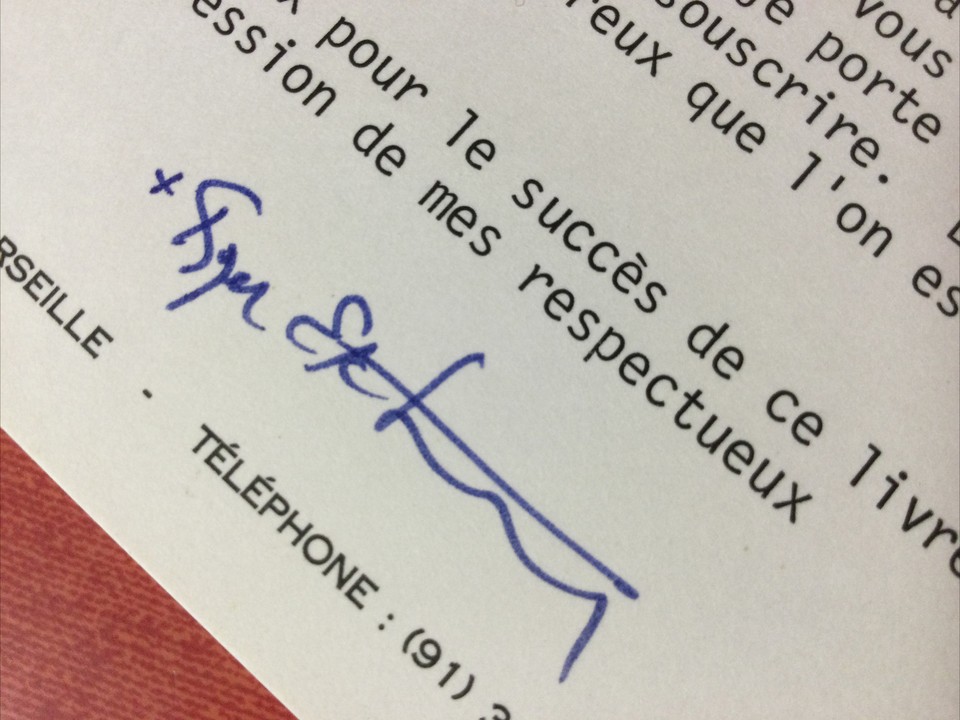 vous
porte
souscrire.
reux que l'on es
x pour le succès de ce livre
ession de mes respectueux
RSEILLE - TÉLÉPHONE : (91) 3